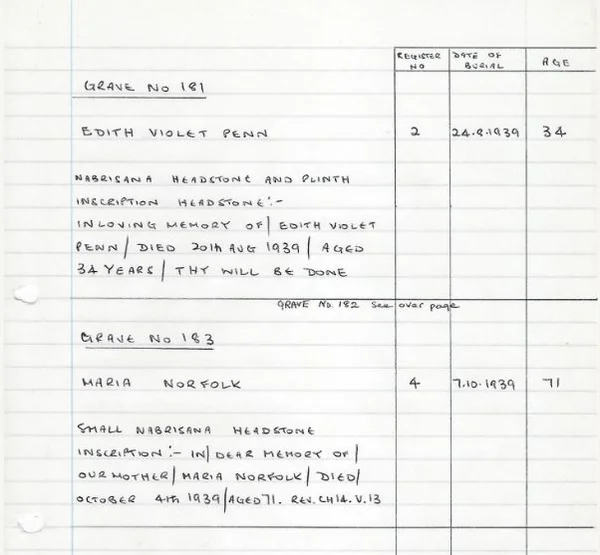 REGISTER NO DATE OF BURIAL AGE
GRAVE No 181
EDITH VIOLET PENN 2 24.8.1939 34
NABRISANA HEADSTONE AND PLINTH
INSCRIPTION HEADSTONE:-
IN LOVING MEMORY OF/ EDITH VIOLET
PENN/ DIED 20th AUG 1939/ AGED
34 YEARS/ THY WILL BE DONE
GRAVE No. 182 See over page
GRAVE No 183
MARIA NORFOLK 4 7.10.1939 71
SMALL NABRISANA HEADSTONE
INSCRIPTION:- IN/ DEAR MEMORY OF/
OUR MOTHER/ MARIA NORFOLK/ DIED/
OCTOBER 4th 1939/ AGED 71. REV. CH14. V.13